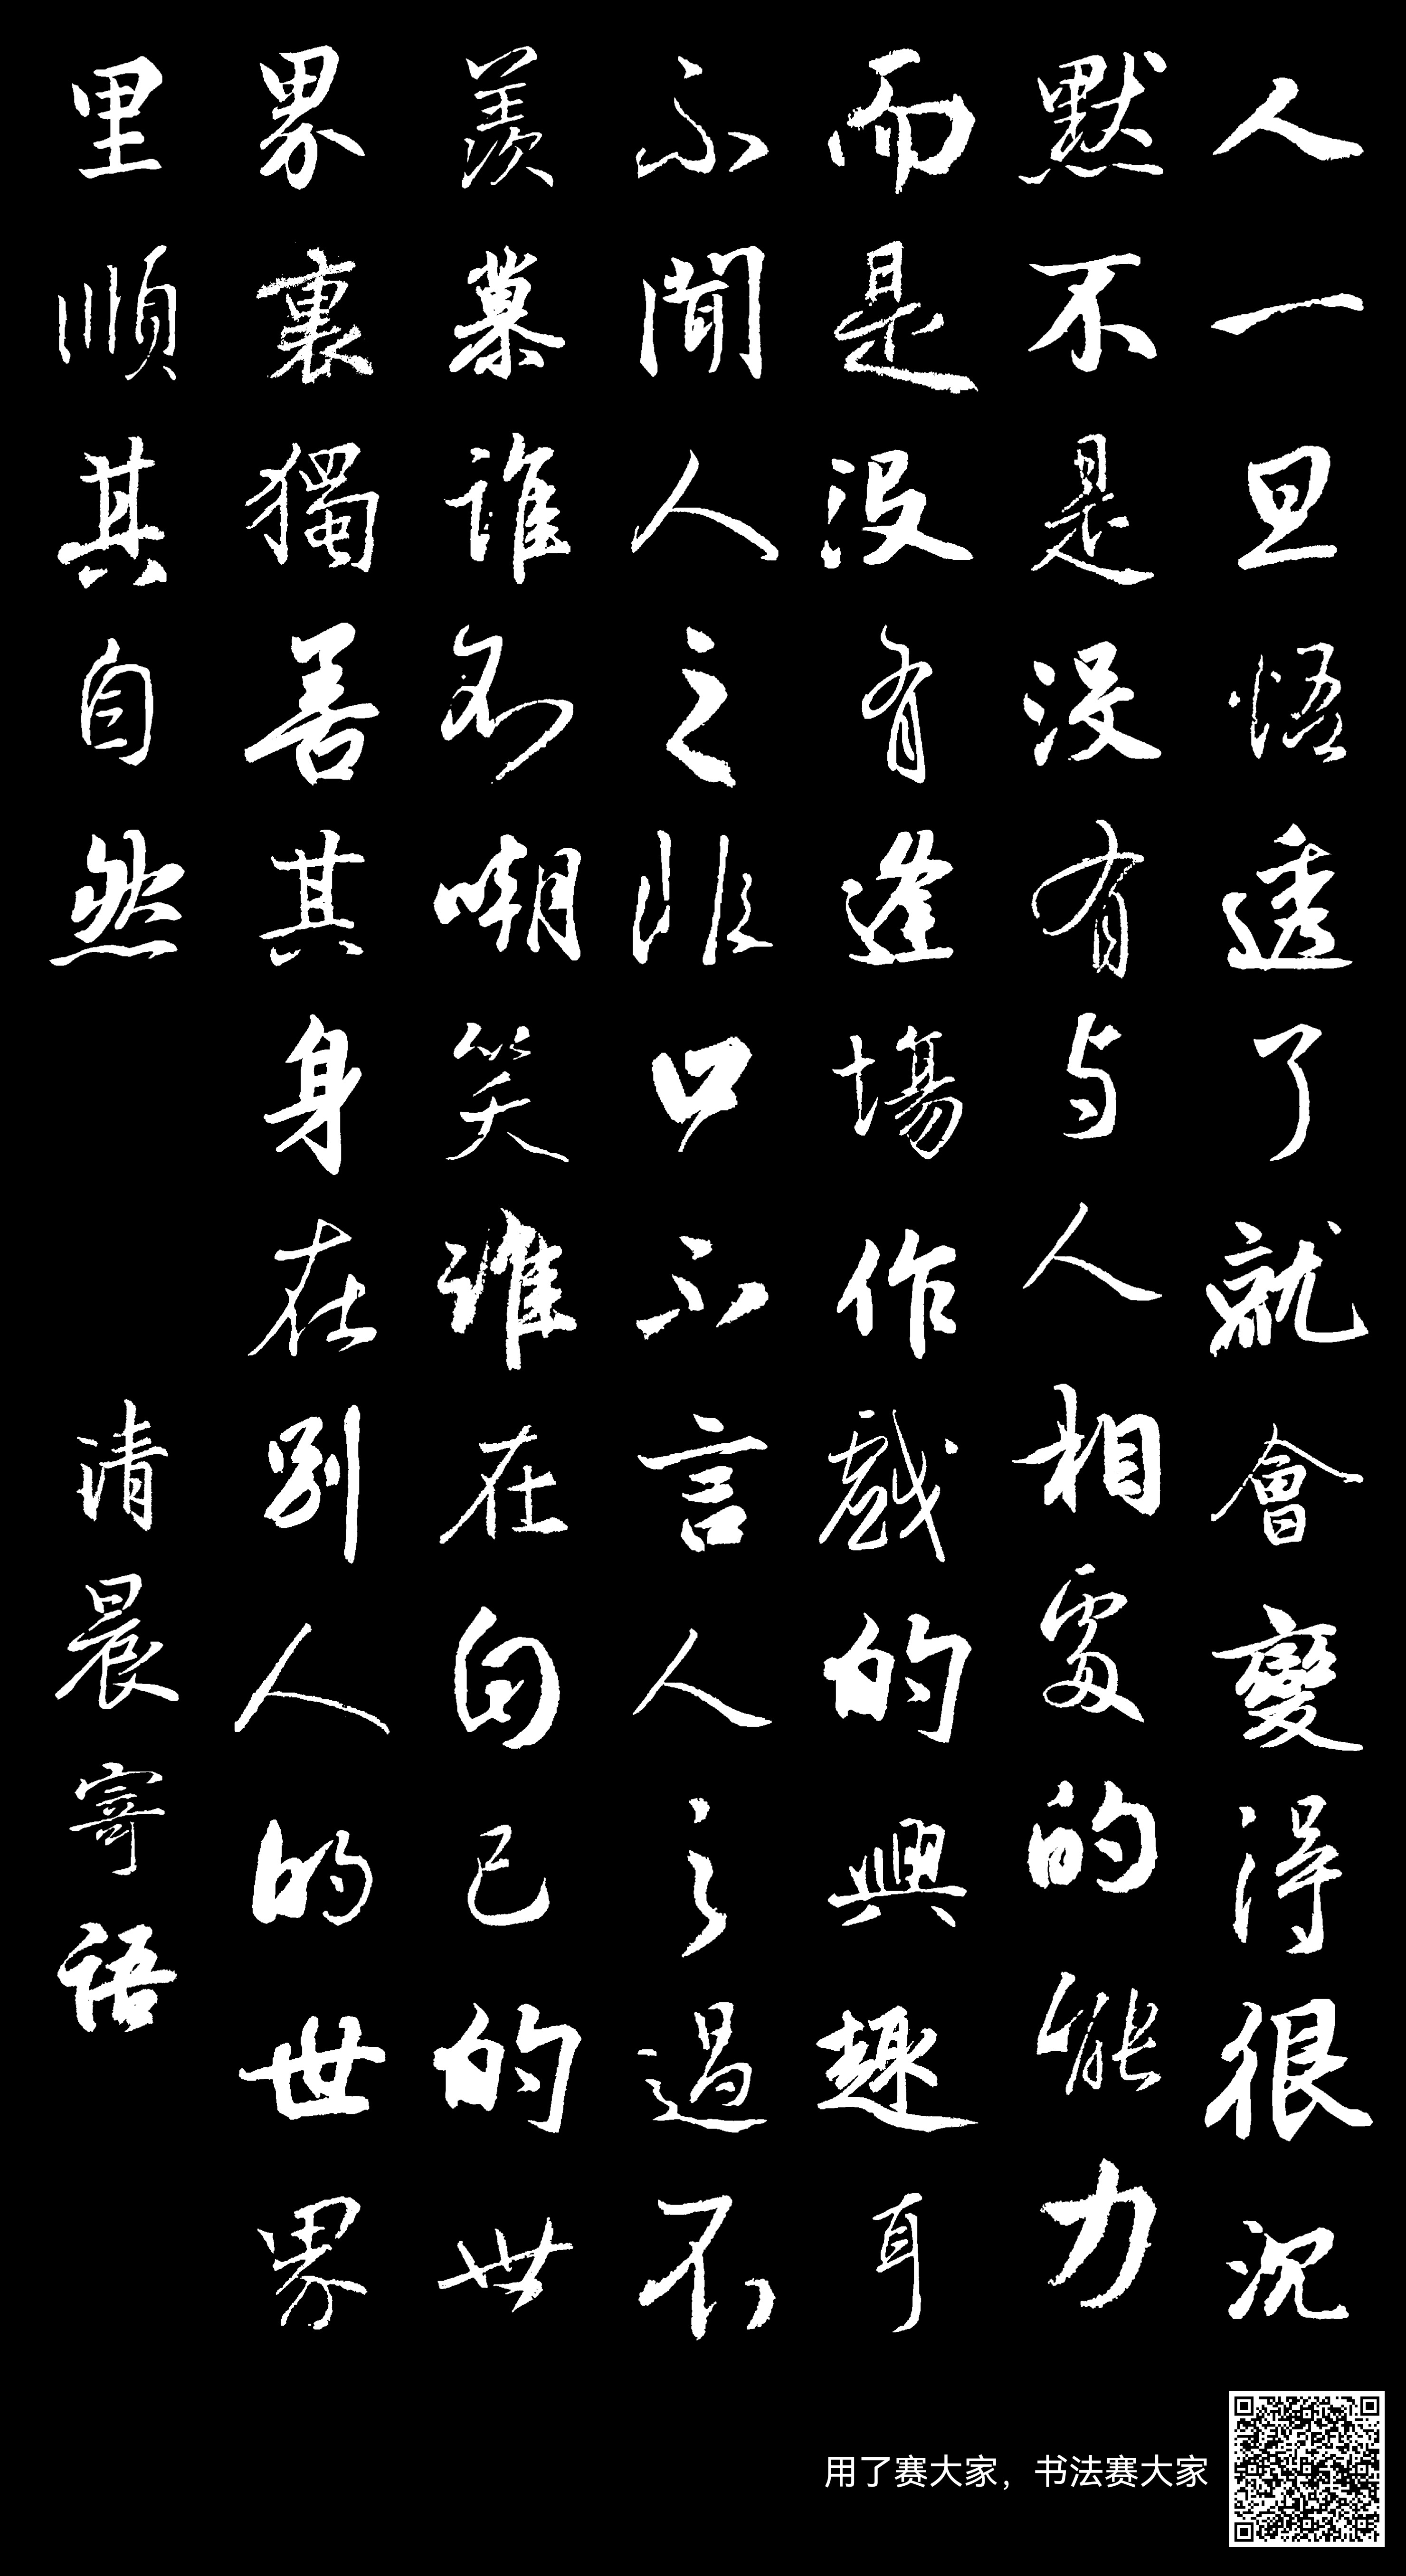 人一旦悟透了就會變得很沉
默不是没有与人相處的能力
而是没有逢場作戲的興趣耳
不聞人之非口不言人之過不
羡慕誰不嘲笑誰在自己的世
界裏獨善其身在别人的世界
里順其自然 清晨寄语
用了赛大家，书法赛大家